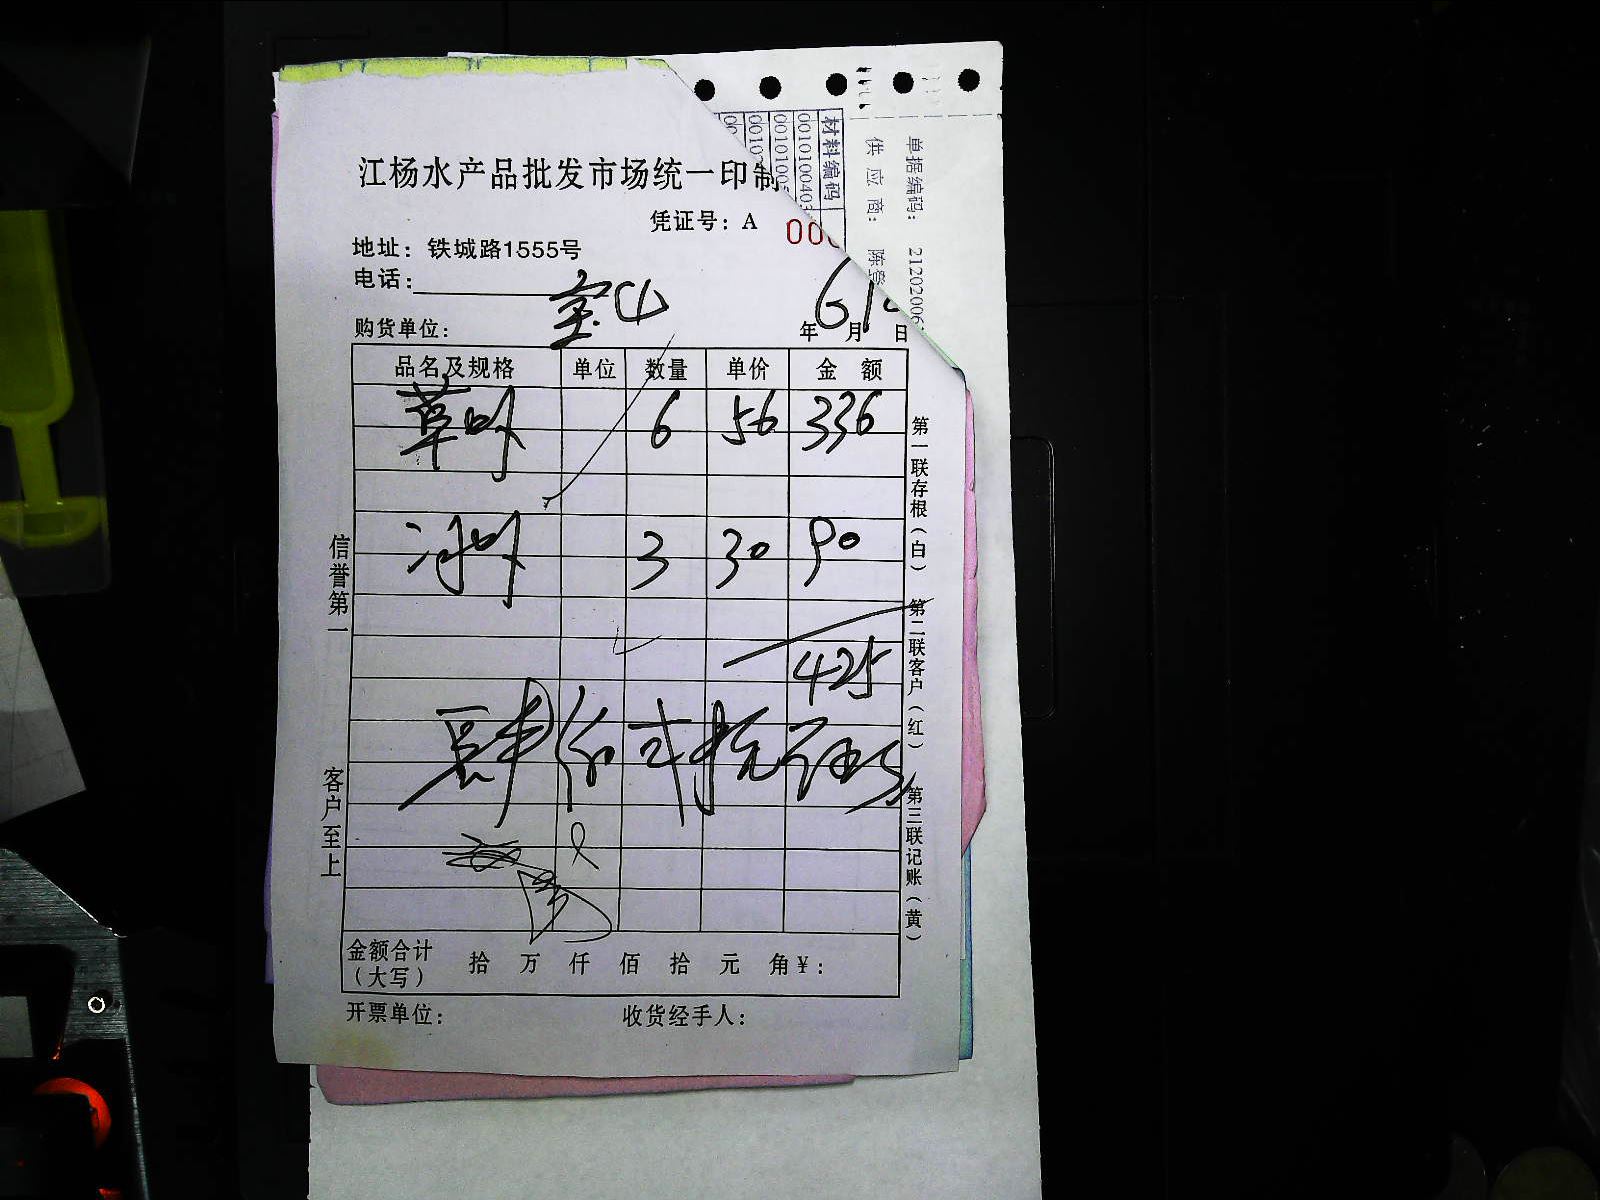 江杨水产品批发市场统一印制
凭证号：A 000
地址：铁城路1555号
电话：
购货单位：宝山 年6月1 日
品名及规格 单位 数量 单价 金 额
草虾 6 56 336
河虾 3 30 90
425
肆佰贰拾伍
金额合计（大写） 拾 万 仟 佰 拾 元 角￥：
开票单位： 收货经手人：
信誉第一
客户至上
第一联存根（白） 第二联客户（红） 第三联记账（黄）
单据编码： 21202006
供 应 商： 陈
材料编码
001010040
00101005